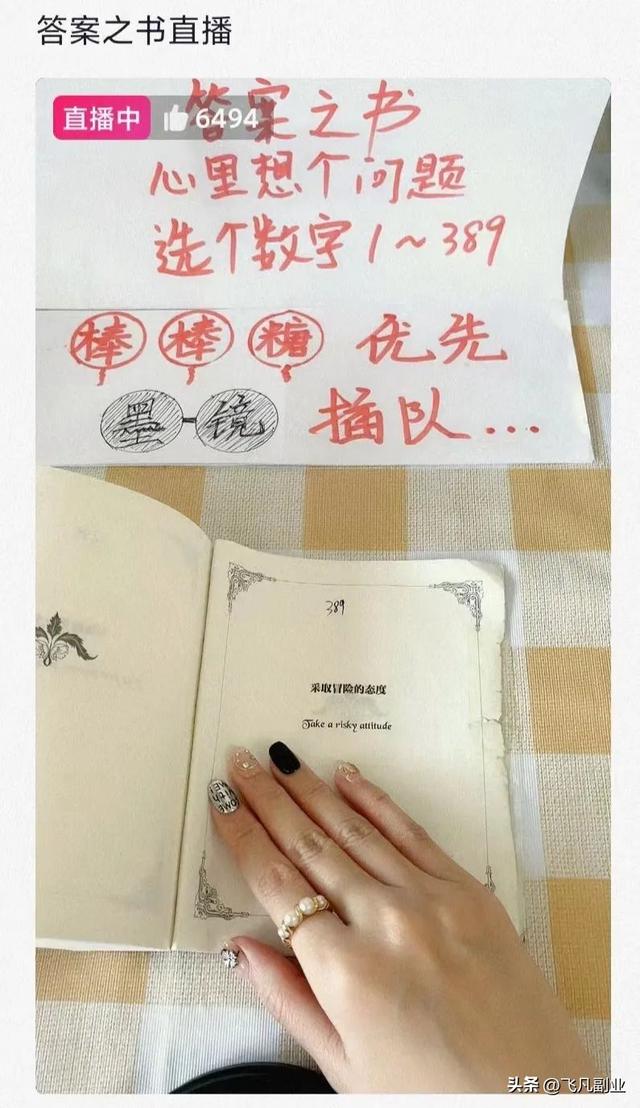 答案之书直播
直播中 6494
答案之书
心里想个问题
选个数字1~389
棒棒糖 优先
墨-镜 插队...
389
采取冒险的态度
Take a risky attitude
头条 @飞凡副业